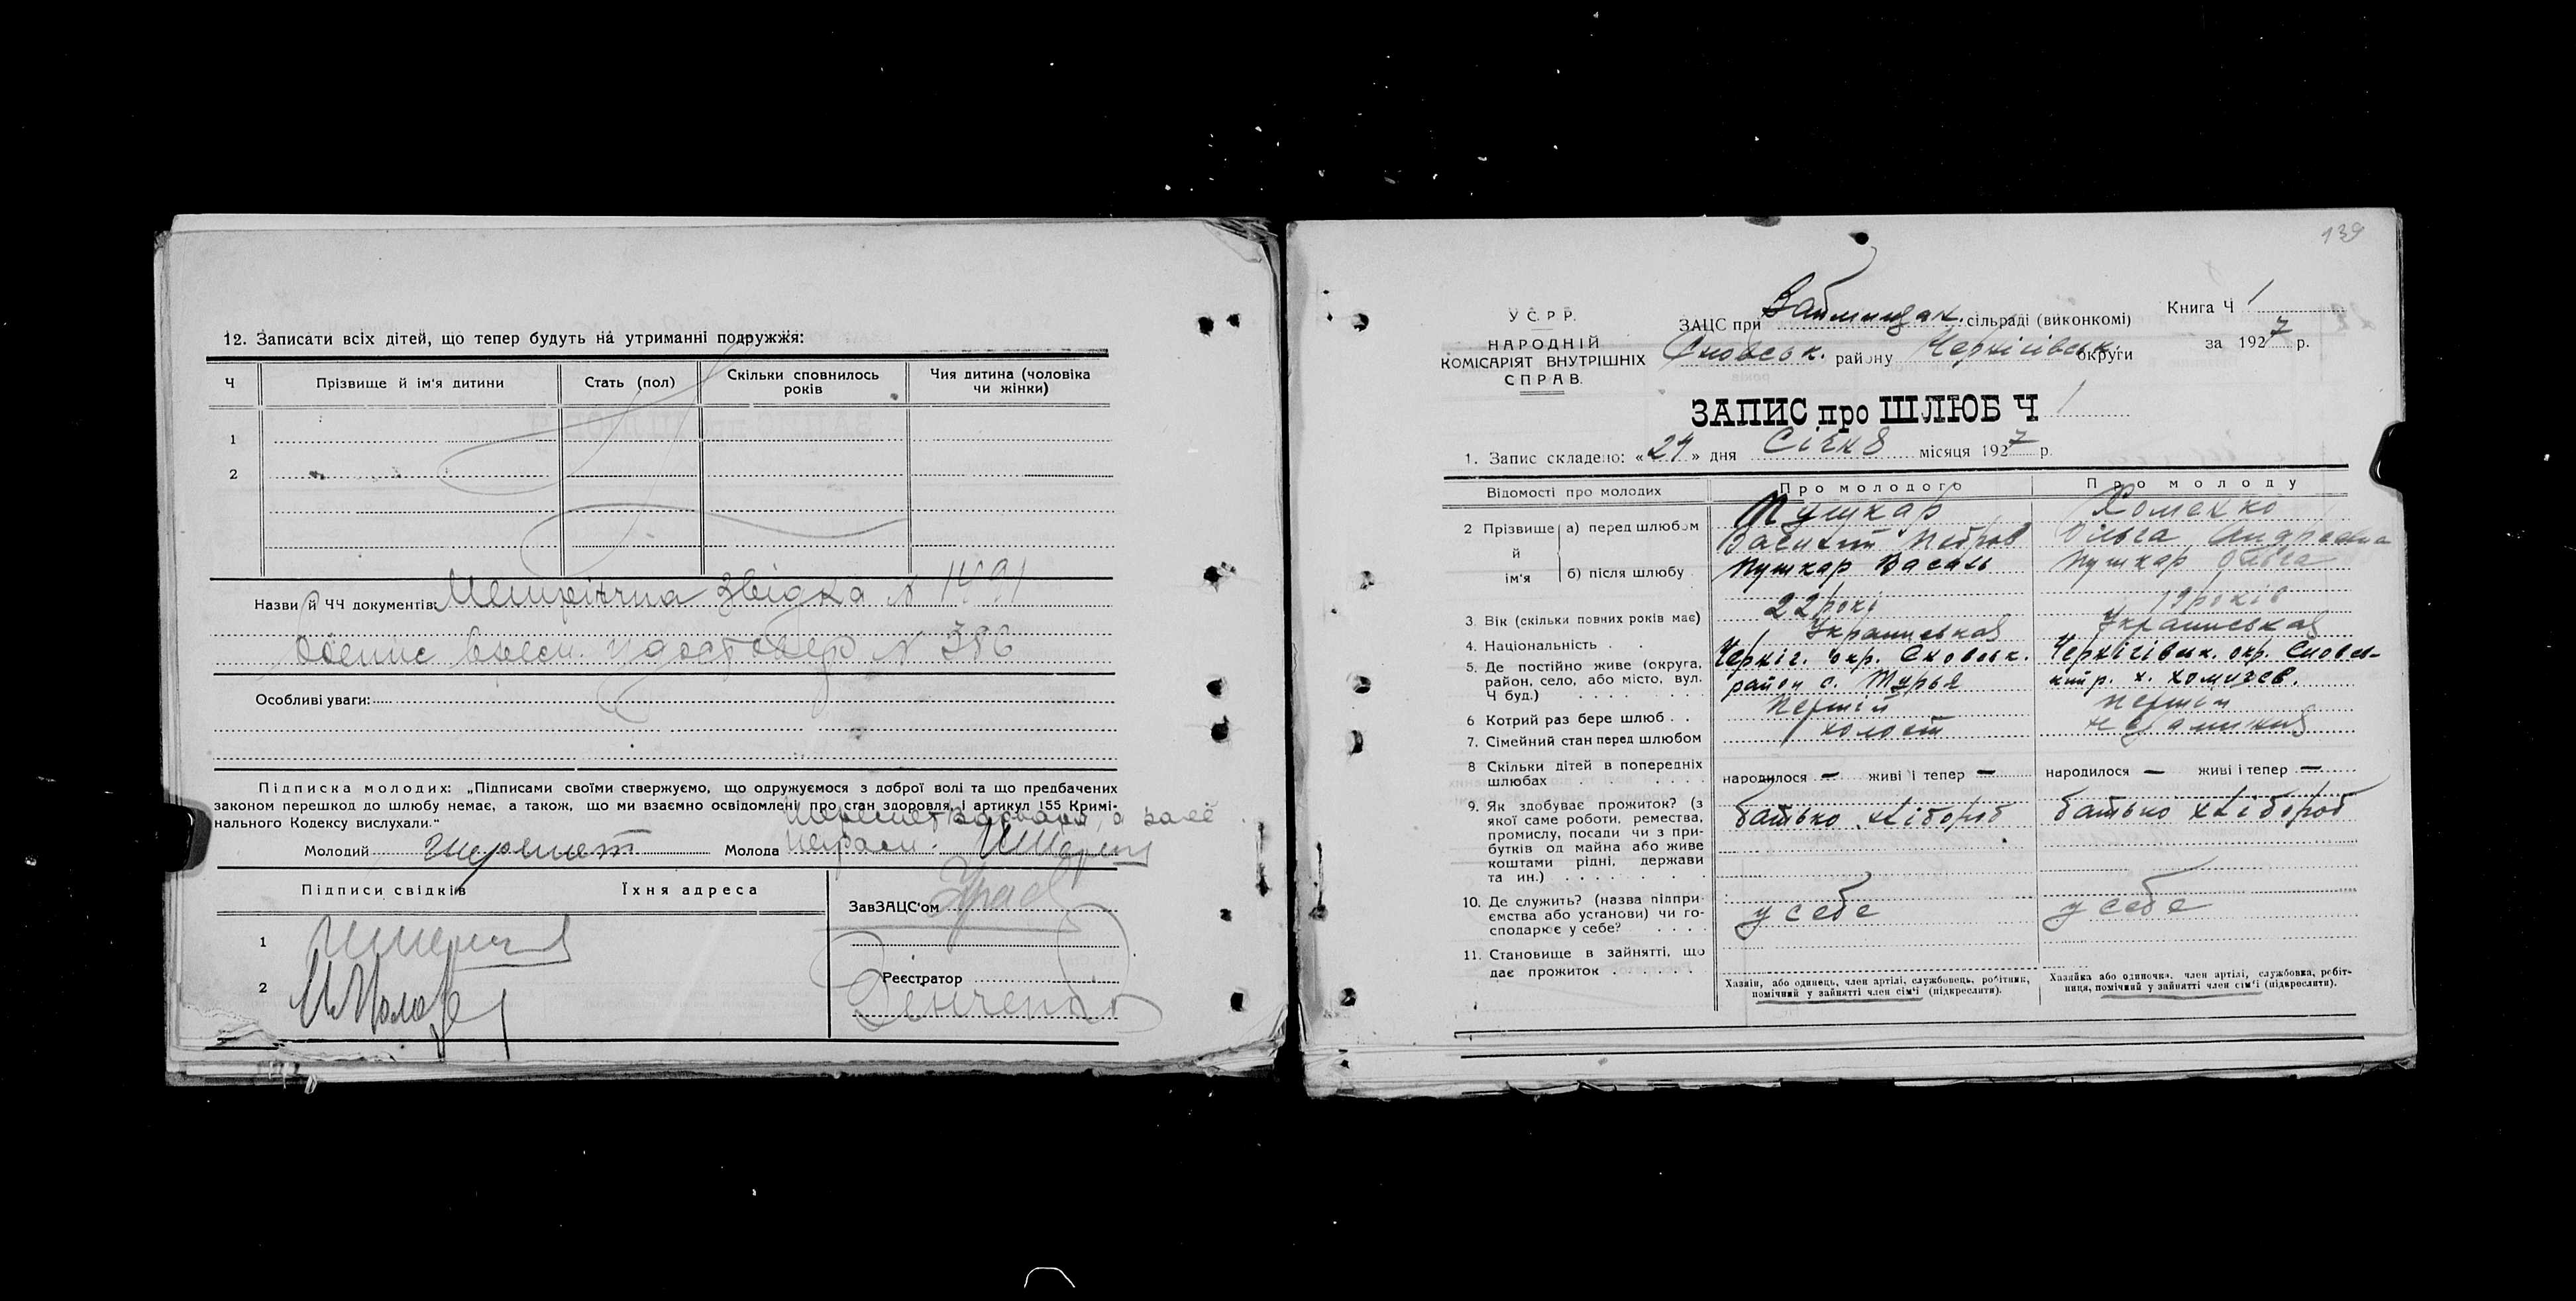 12. Записати всіх дітей, що тепер будуть на утриманні подружжя:
Ч
Прізвище й ім'я дитини
Стать (пол)
Скільки сповнилось років
Чия дитина (чоловіка чи жінки)
1
2
Назви й ЧЧ документів: Метрична Звідка N 1491
N 386
Особливі уваги:
Підписка молодих: „Підписами своїми ствержуємо, що одружуємося з доброї волі та що предбачених
законом перешкод до шлюбу немає, а також, що ми взаємно освідомлені про стан здоровля, і артикул 155 Кримі-
нального Кодексу вислухали.“
Молодий Шеремет Молода
Підписи свідків Їхня адреса
ЗавЗАЦС'ом
1
2
Реєстратор
139
У С. Р Р.
НАРОДНІЙ
КОМІСАРІЯТ ВНУТРІШНІХ
СПРАВ.
ЗАЦС при сільраді (виконкомі)
Сновськ. району Чернігівськ. округи
Книга Ч 1
за 1927 р.
ЗАПИС про ШЛЮБ Ч 1
1. Запис складено: «24» дня Січня місяця 1927 р.
Відомості про молодих
Про молодого
Про молоду
2 Прізвище й ім'я
а) перед шлюбом
Пушкар
Петров
Хоменко
Ольга
б) після шлюбу
Пушкар Василь
Пушкар Ольга
3 Вік (скільки повних років має)
22 рокі
19 років
4. Національність . .
Украинська
Украинська
5. Де постійно живе (округа, район, село, або місто, вул. Ч буд.)
Черніг. окр. Сновськ.
район с. Турья
Чернігівськ. окр. Сновсь-
кий р. х.
6 Котрий раз бере шлюб . .
Перший
перший
7. Сімейний стан перед шлюбом
холост
8 Скільки дітей в попередніх шлюбах
народилося — живі і тепер —
народилося — живі і тепер —
9. Як здобуває прожиток? (з якої саме роботи, ремества, промислу, посади чи з прибутків од майна або живе коштами рідні, держави та ин.)
батько хлібороб
батько хлібороб
10. Де служить? (назва підприємства або установи) чи господарює у себе?
у себе
у себе
11. Становище в зайнятті, що дає прожиток
Хазяїн, або одинець, член артілі, службовець, робітник,
помічний у зайнятті член сім'ї (підкреслити).
Хазяйка або одиночка, член артілі, службовка, робіт-
ниця, помічний у зайнятті член сім'ї (підкреслити).